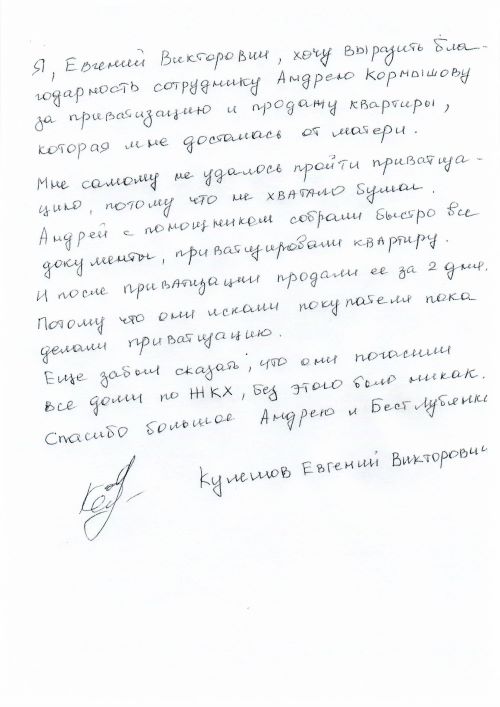 Я, Евгений Викторович, хочу выразить бла-
годарность сотруднику Андрею Кормышову
за приватизацию и продажу квартиры,
которая мне досталась от матери.
Мне самому не удалось пройти приватиза-
цию, потому что не хватало бумаг.
Андрей с помощником собрали быстро все
документы, приватизировали квартиру.
И после приватизации продали ее за 2 дня.
Потому что они искали покупателя пока
делали приватизацию.
Еще забыл сказать, что они погасили
все долги по ЖКХ, без этого было никак.
Спасибо большое Андрею и Бест Лубянке
Кулешов Евгений Викторович